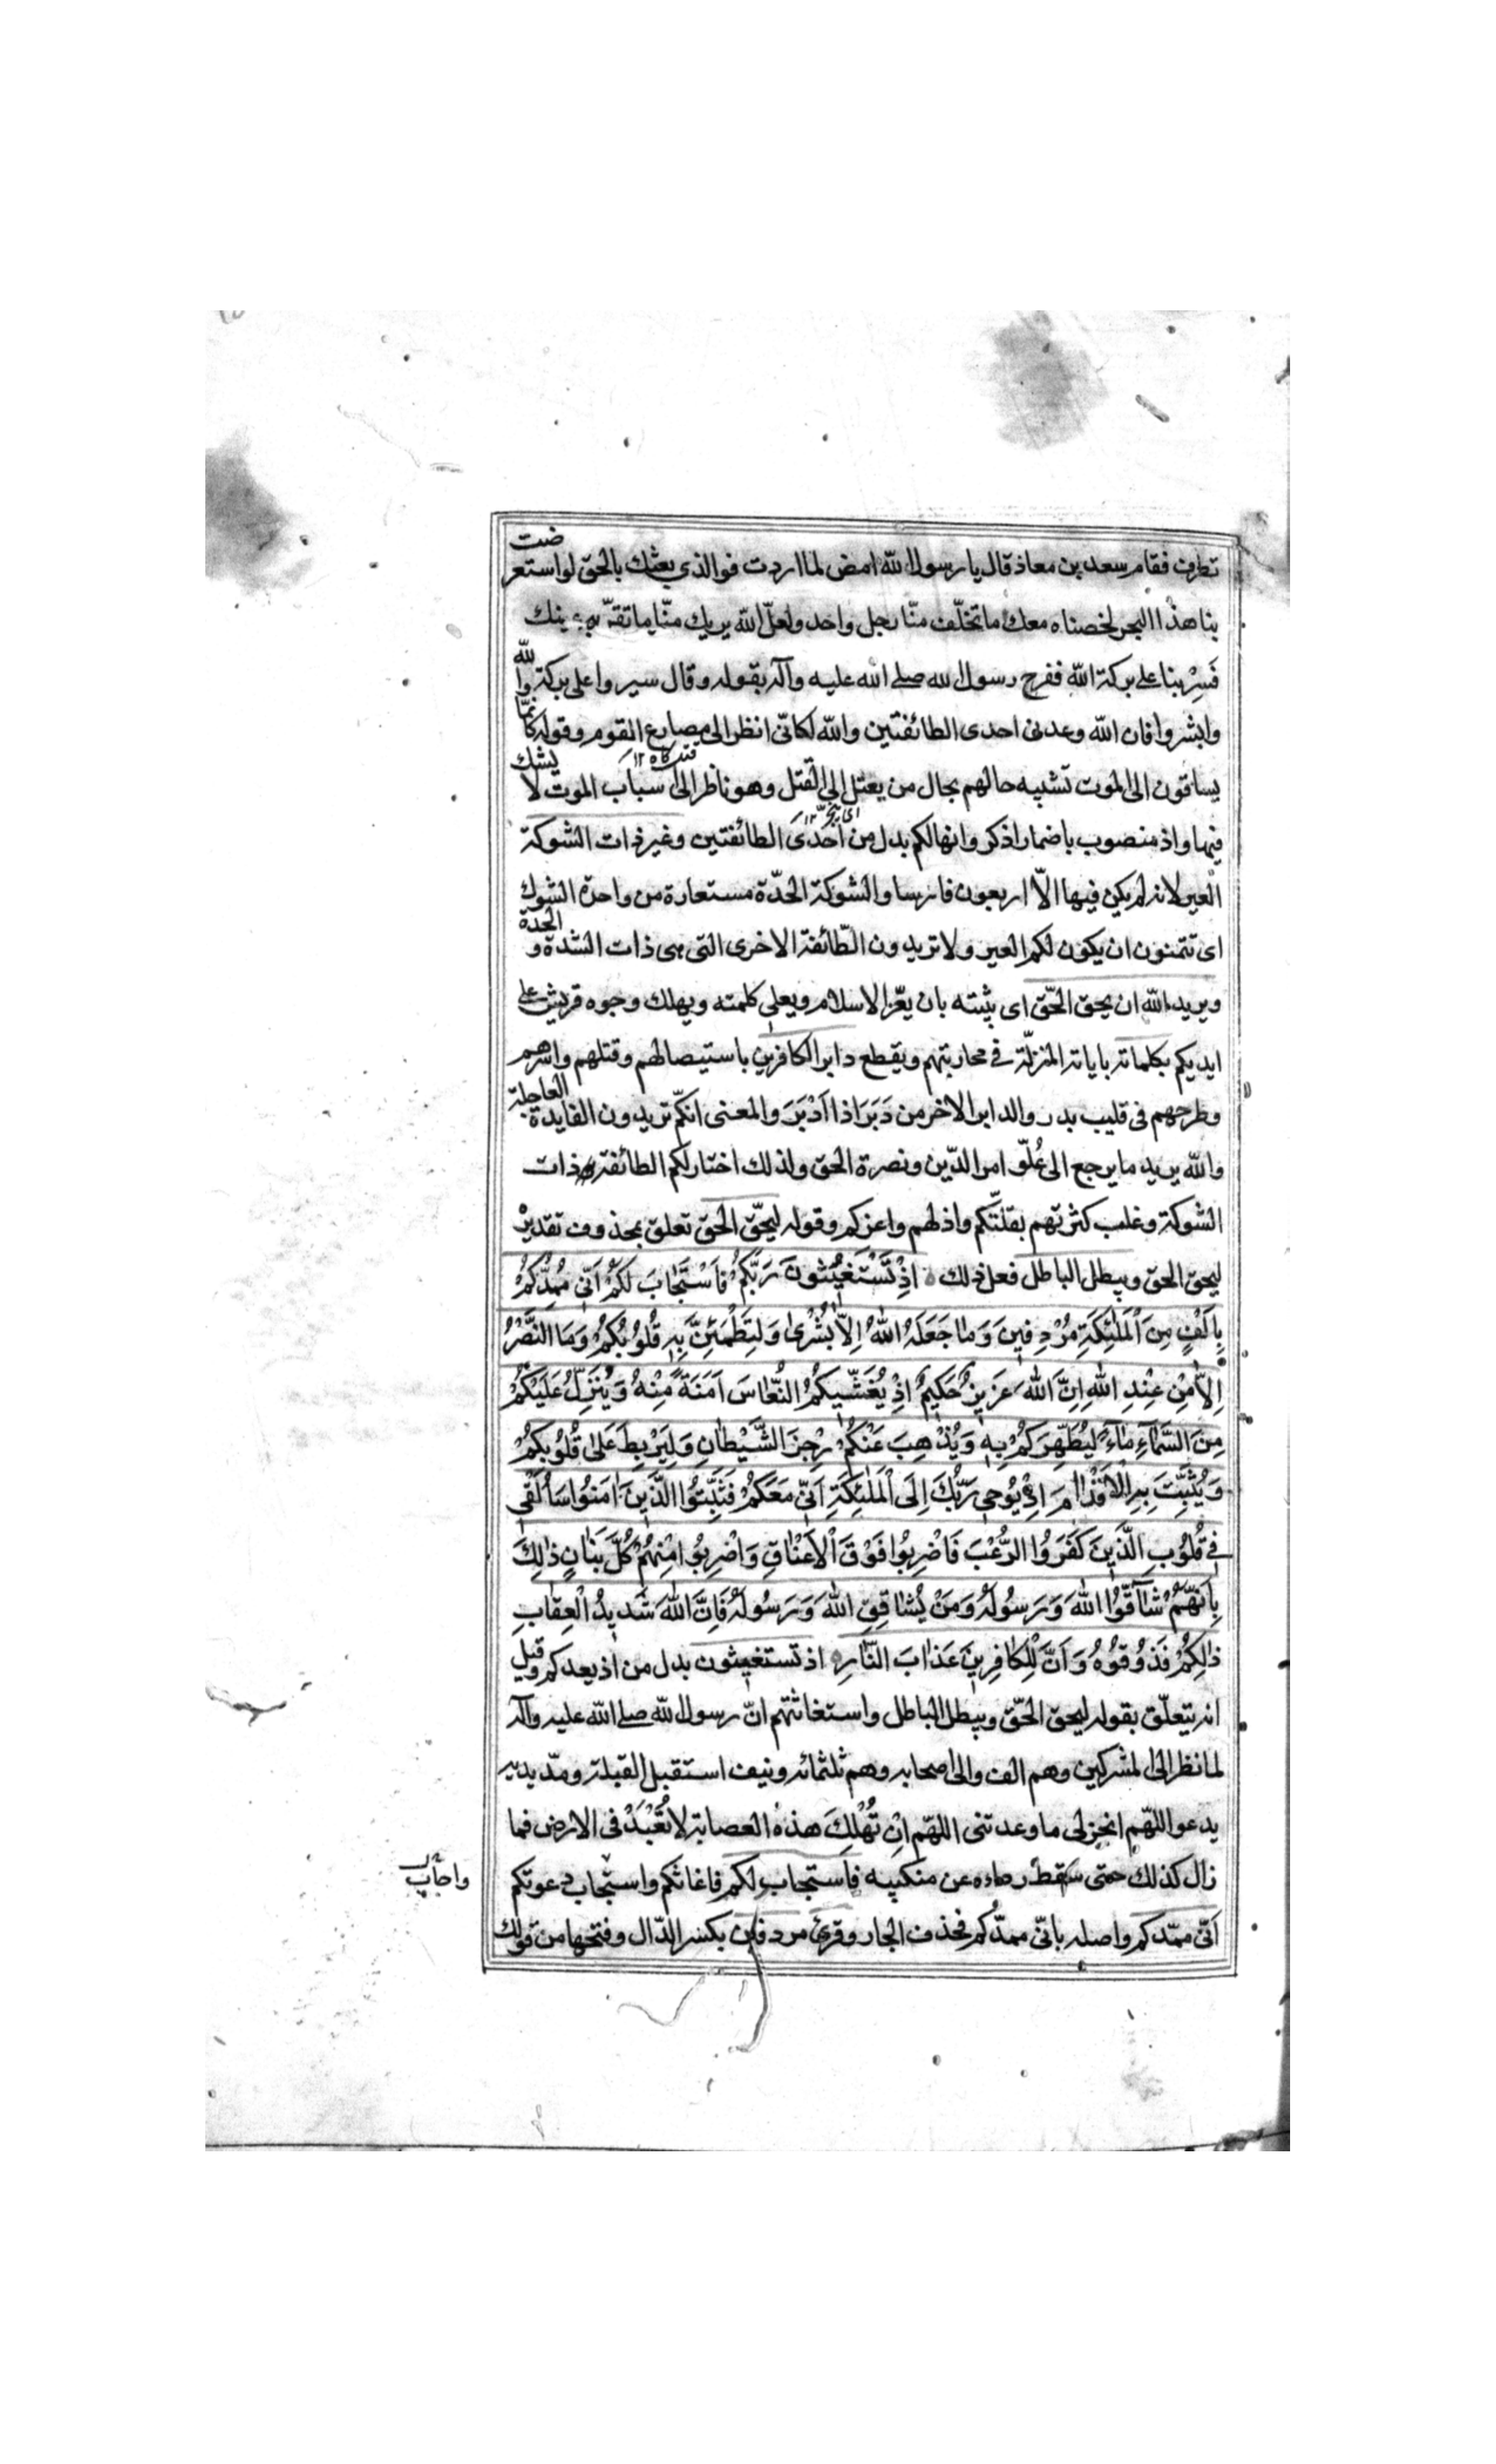 تطرف فقام سعد بن معاذ قال يا رسول الله امض لما اردت فوالذي بعثك بالحق لو استعرضت
بنا هذا البحر لخضناه معك ما تخلّف منّا رجل واحد ولعلّ الله يريك منّا ما تقرّ به عينك
فَسِرْ بنا على بركة الله ففرح رسول الله صلى الله عليه وآله بقوله وقال سيروا على بركة الله
وابشروا فان الله وعدنى احدى الطائفتين والله لكانّى انظر الى مصارع القوم وقوله كانّما
يساقون الى الموت تشبيه حالهم بحال من يعتل الى القتل وهو ناظر الى اسباب الموت لا يشك
فيها واذ منصوب باضمار اذكر وانها لكم بدل من احدى الطائفتين وغير ذات الشوكة
العير لانه لم يكن فيها الّا اربعون فارسا والشوكة الحدّة مستعارة من واحدة الشوك
اى تتمنون ان يكون لكم العير ولا تريدون الطّائفة الاخرى التى هى ذات الشدة والحدة
ويريد الله ان يحق الحقّ اى يثبته بان يعّز الاسلام ويعلى كلمته ويهلك وجوه قريش على
ايديكم بكلماته باياته المنزلّة في محاربتهم ويقطع دابر الكافرين باستيصالهم وقتلهم واسرهم
وطرحهم فى قليب بدر والدابر الاخر من دَبَرَ اذا اَدْبَرَ والمعنى انكّم تريدون الفايدة العاجلة
والله يريد ما يرجع الى عُلّو امر الدّين ونصرة الحق ولذلك اختار لكم الطائفة ذات
الشوكة وغلب كثرتهم بقلّتكم واذلهم واعزكم وقوله ليحّق الحق تعلق بمحذوف تقديره
ليحق الحق ويبطل الباطل فعل ذلك ۞ اِذْ تَسْتَغيثُونَ رَبَّكُمْ فَاسْتَجٰابَ لَكُمْ اَنّى مُمِدُّكُمْ
بِاَلْفٍ مِنَ اْلمَلٰئِكَةِ مُرْدِفينَ وَمٰا جَعَلَهُ اللهُ اِلّاٰ بُشْرىٰ وَلِتَطْمَئِنَّ بِهِ قُلُوبُكُمْ وَمَا النَّصْرُ
اِلّاٰ مِنْ عِنْدِ اللهِ اِنَّ اللهَ عَزيزٌ حَكيمٌ اِذْ يُغَشّيكُمُ النُّعٰاسَ اَمَنَةً مِنْهُ وَيُنَزِّلُ عَلَيْكُمْ
مِنَ السَّمٰاءِ مٰاءً لِيُطَهِّرَكُمْ بِهِ وَيُذْهِبَ عَنْكُمْ رِجْزَ الشَّيْطٰانِ وَلِيَرْبِطَ عَلىٰ قُلُوبِكُمْ
وَيُثَبِّتَ بِهِ اْلاَقْدٰامَ اِذْ يُوحى رَبُّكَ اِلَى اْلمَلٰئِكَةِ اَنّى مَعَكُمْ فَثَبِّتُوا الَّذينَ اٰمَنُوا سَاُلْقى
فى قُلُوبِ الَّذينَ كَفَرُوا الرُّعْبَ فَاضْرِبُوا فَوْقَ اْلاَعْنٰاقِ وَاضْرِبُوا مِنْهُمْ كُلَّ بَنٰانٍ ذٰلِكَ
بِاَنَّهُمْ شٰاقُّوا اللهَ وَرَسُولَهُ وَمَنْ يُشٰاقِقِ اللهَ وَرَسُولَهُ فَاِنَّ اللهَ شَديدُ الْعِقٰابِ
ذٰلِكُمْ فَذُوقُوهُ وَاَنَّ لِلْكٰافِرينَ عَذٰابَ النّٰارِ ۞ اذ تستغيثون بدل من اذ يعدكم وقيل
انه يتعلّق بقوله ليحق الحقّ ويبطل الباطل واستغاثتهم انّ رسول الله صلى الله عليه وآله
لما نظر الى المشركين وهم الف والى اصحابه وهم ثلثمائه ونيف استقبل القبلة ومدّ يديه
يدعو اللهّم انجز لى ما وعدتنى اللهّم اِنْ تُهْلِكَ هذه العصابة لا تُعْبَدْ فى الارض فما
زال كذلك حتى سقط رداءه عن منكبيه فاستجاب لكم فاغاثكم واستجاب دعوتكم
واجاب
اَنّى ممّدكم واصله بانّى ممدّكم فحذف الجار وقرئ مردفين بكسر الدّال وفتحها من قولك